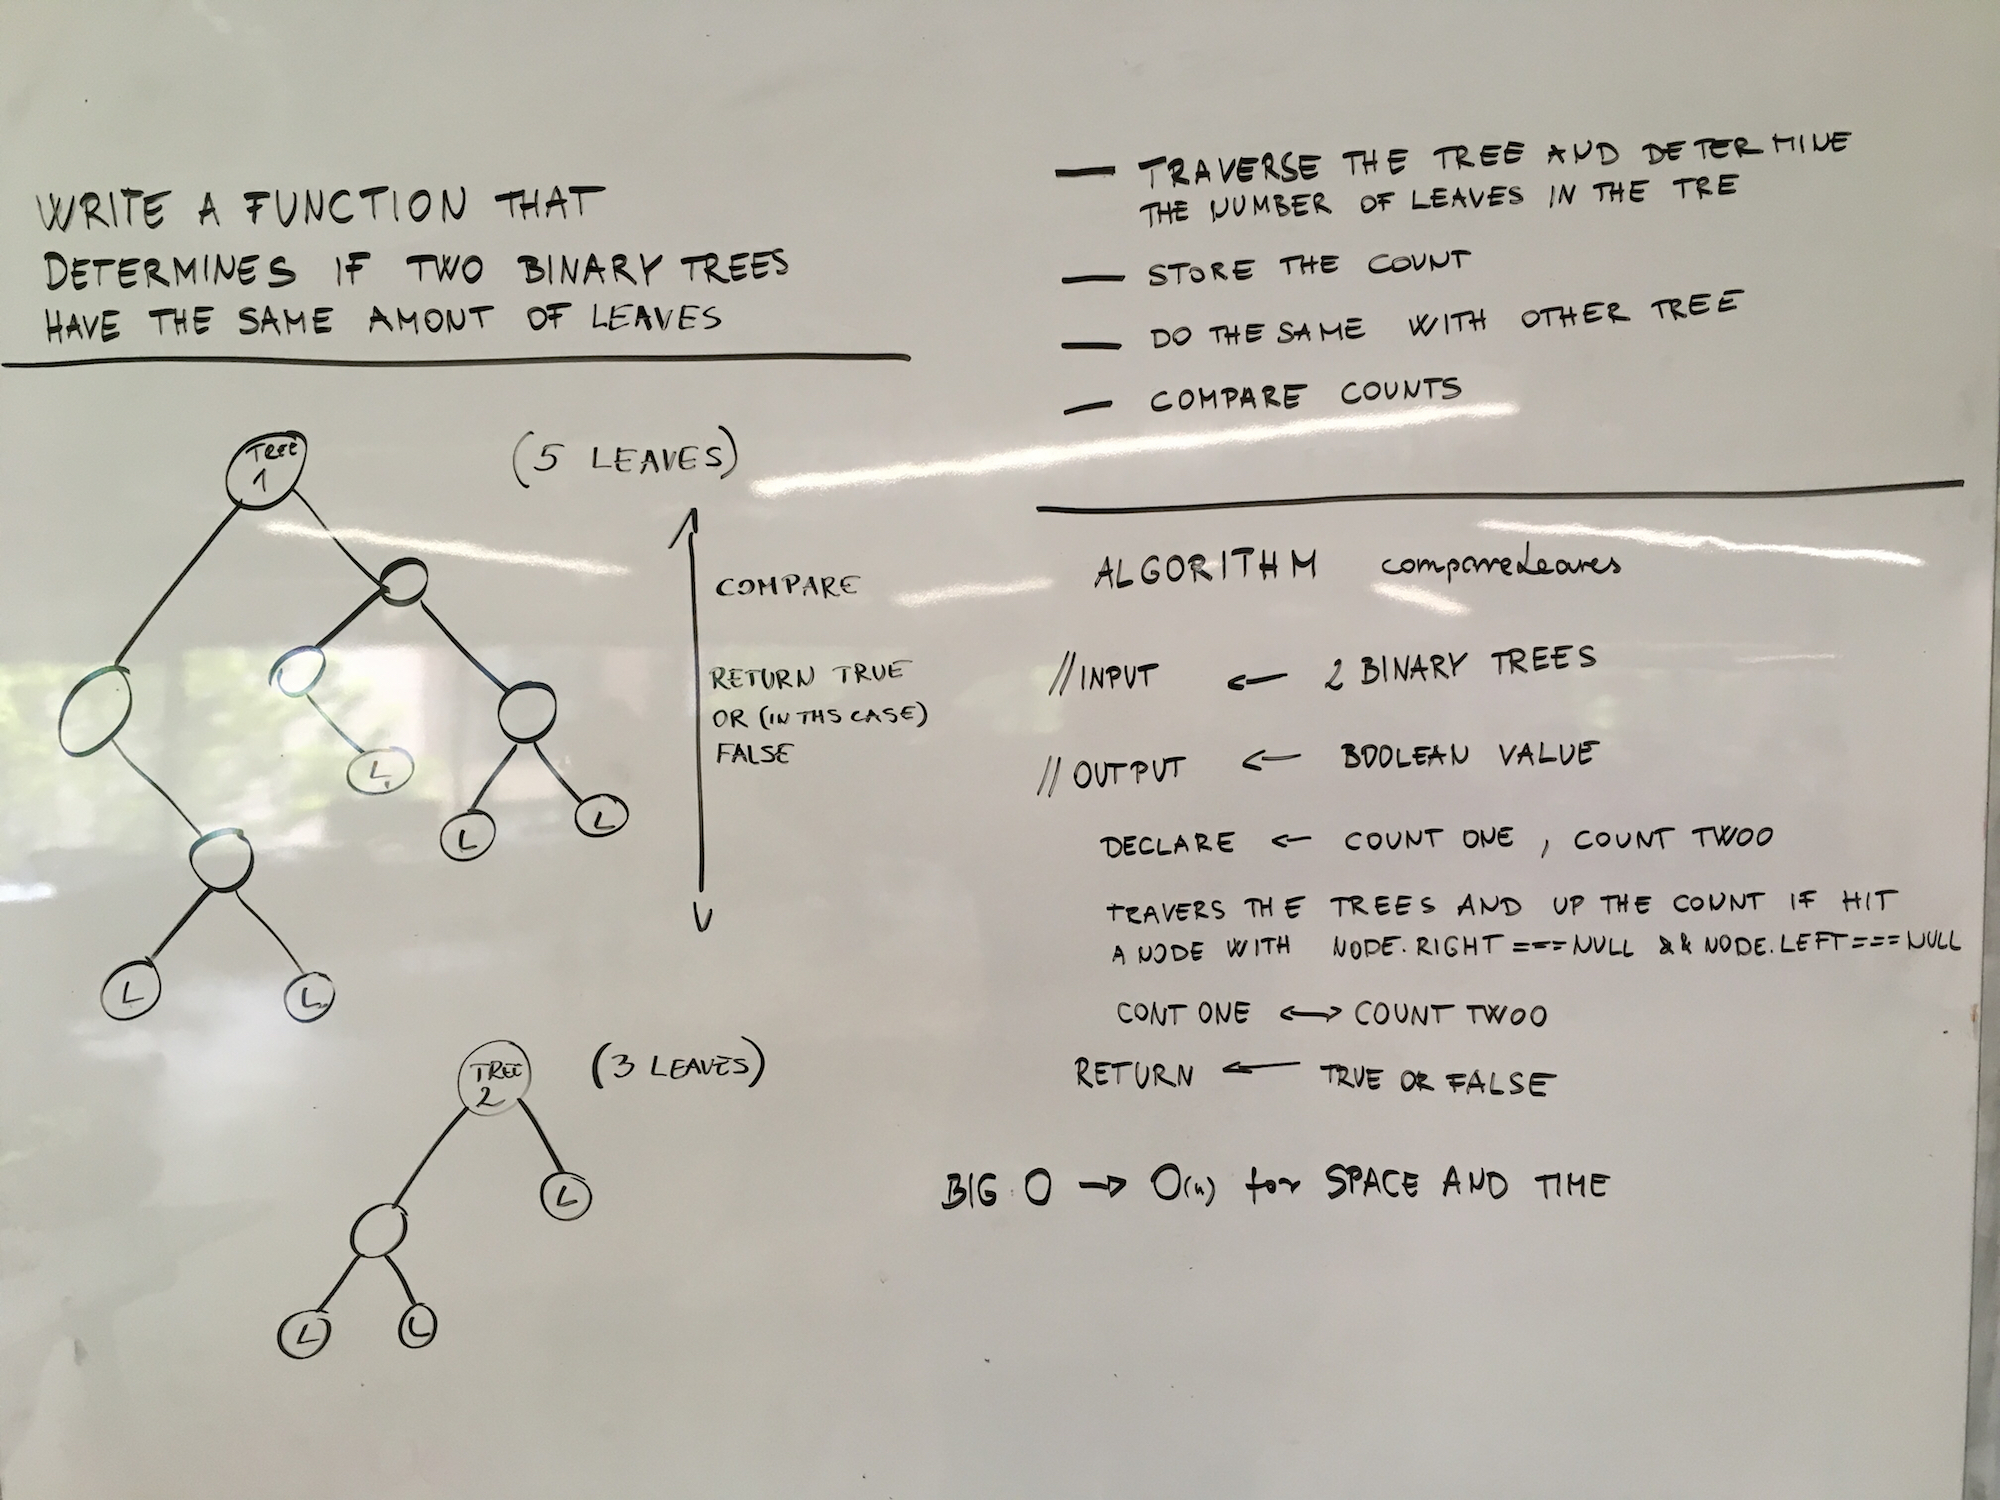 WRITE A FUNCTION THAT
DETERMINES IF TWO BINARY TREES
HAVE THE SAME AMOUNT OF LEAVES
TREE
1
(5 LEAVES)
COMPARE
RETURN TRUE
OR (IN THS CASE)
FALSE
L
L
L
L
L
TREE
2
(3 LEAVES)
L
L
L
— TRAVERSE THE TREE AND DETERMINE
THE NUMBER OF LEAVES IN THE TRE
— STORE THE COUNT
— DO THE SAME WITH OTHER TREE
— COMPARE COUNTS
ALGORITHM compareLeaves
//INPUT ← 2 BINARY TREES
//OUTPUT ← BOOLEAN VALUE
DECLARE ← COUNT ONE , COUNT TWOO
TRAVERS THE TREES AND UP THE COUNT IF HIT
A NODE WITH NODE.RIGHT === NULL && NODE.LEFT === NULL
CONT ONE ↔ COUNT TWOO
RETURN ← TRUE OR FALSE
BIG O → O(n) for SPACE AND TIME